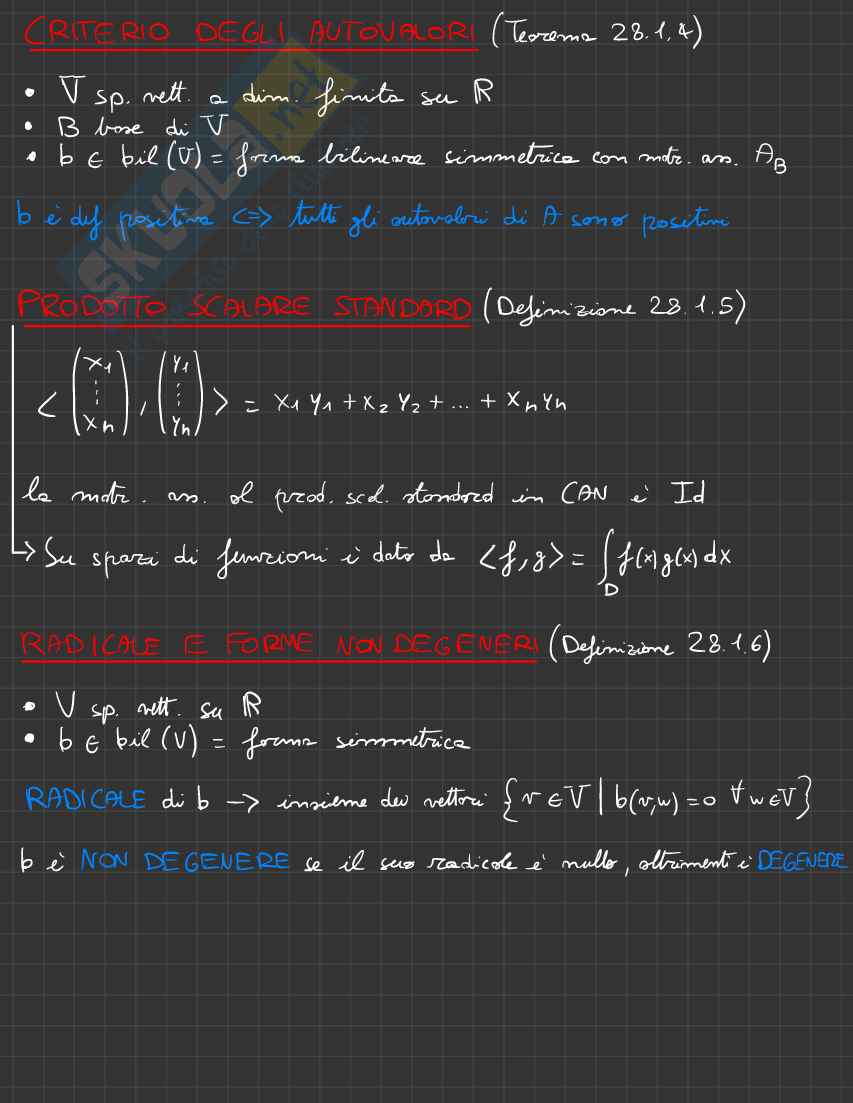 CRITERIO DEGLI AUTOVALORI (Teorema 28.1.4)
• V sp. vett. a dim. finita su ℝ
• B base di V
• b ∈ bil(V) = forma bilineare simmetrica con matr. ass. A_B
b è def positiva <=> tutti gli autovalori di A sono positivi
PRODOTTO SCALARE STANDARD (Definizione 28.1.5)
< (x₁ ⋮ xₙ), (y₁ ⋮ yₙ) > = x₁y₁ + x₂y₂ + ... + xₙyₙ
la matr. ass. al prod. scal. standard in CAN è Id
→ Su spazi di funzioni è dato da <f,g> = ∫_D f(x)g(x)dx
RADICALE E FORME NON DEGENERI (Definizione 28.1.6)
• V sp. vett. su ℝ
• b ∈ bil(V) = forma simmetrica
RADICALE di b -> insieme dei vettori {v ∈ V | b(v,w) = 0 ∀ w ∈ V}
b è NON DEGENERE se il suo radicale è nullo, altrimenti è DEGENERE
SKUOLA.net